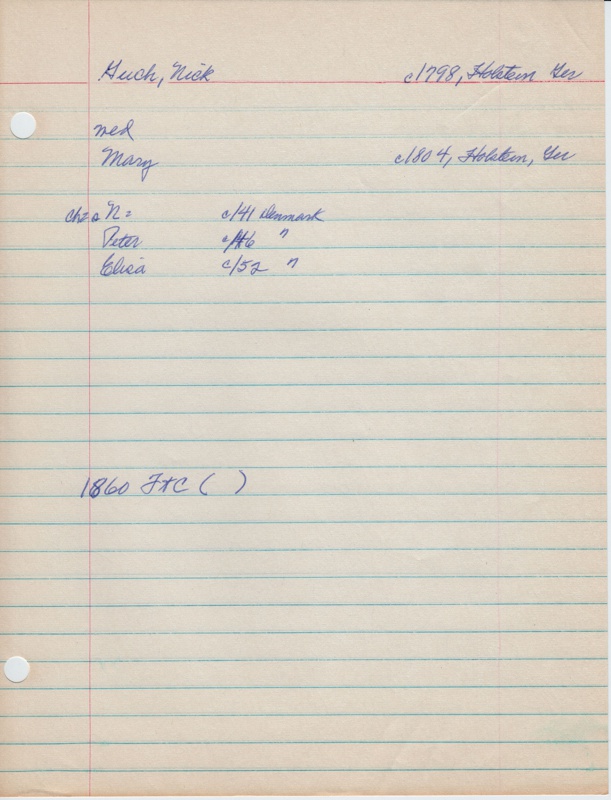 Guch, Nick c1798, Holstein Ger
med
Mary c1804, Holstein, Ger
N= c/41 Denmark
Peter c/46 "
Elisa c/52 "
1860 F+C ( )